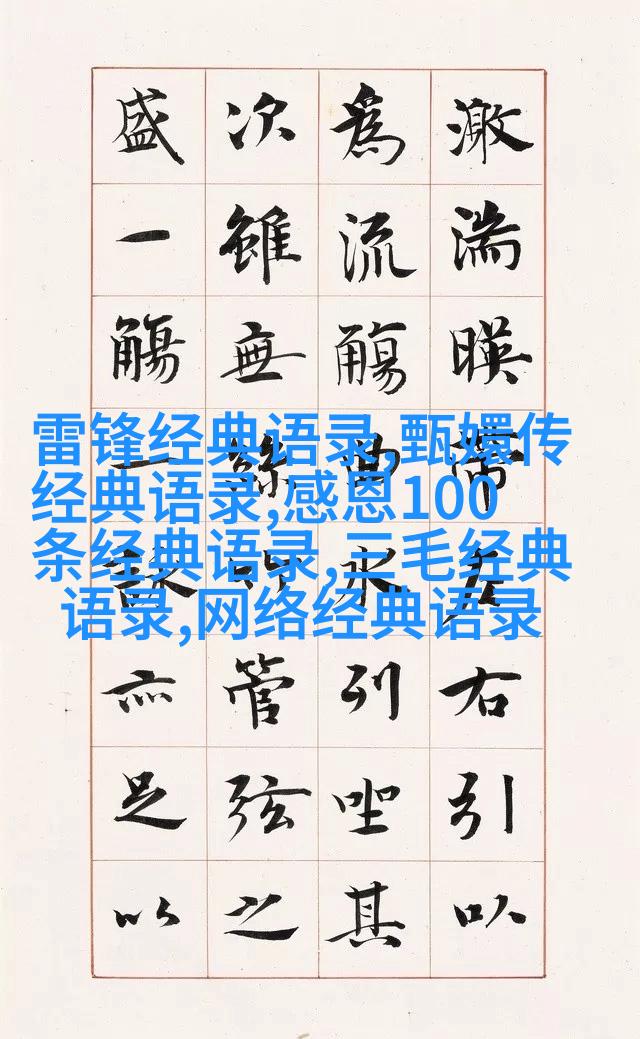 激湍暎帶左右引以
為流觴曲水列坐其
次雖無絲竹管弦之
盛一觴一詠亦足以
雷锋经典语录,甄嬛传
经典语录,感恩100
条经典语录,三毛经典
语录,网络经典语录